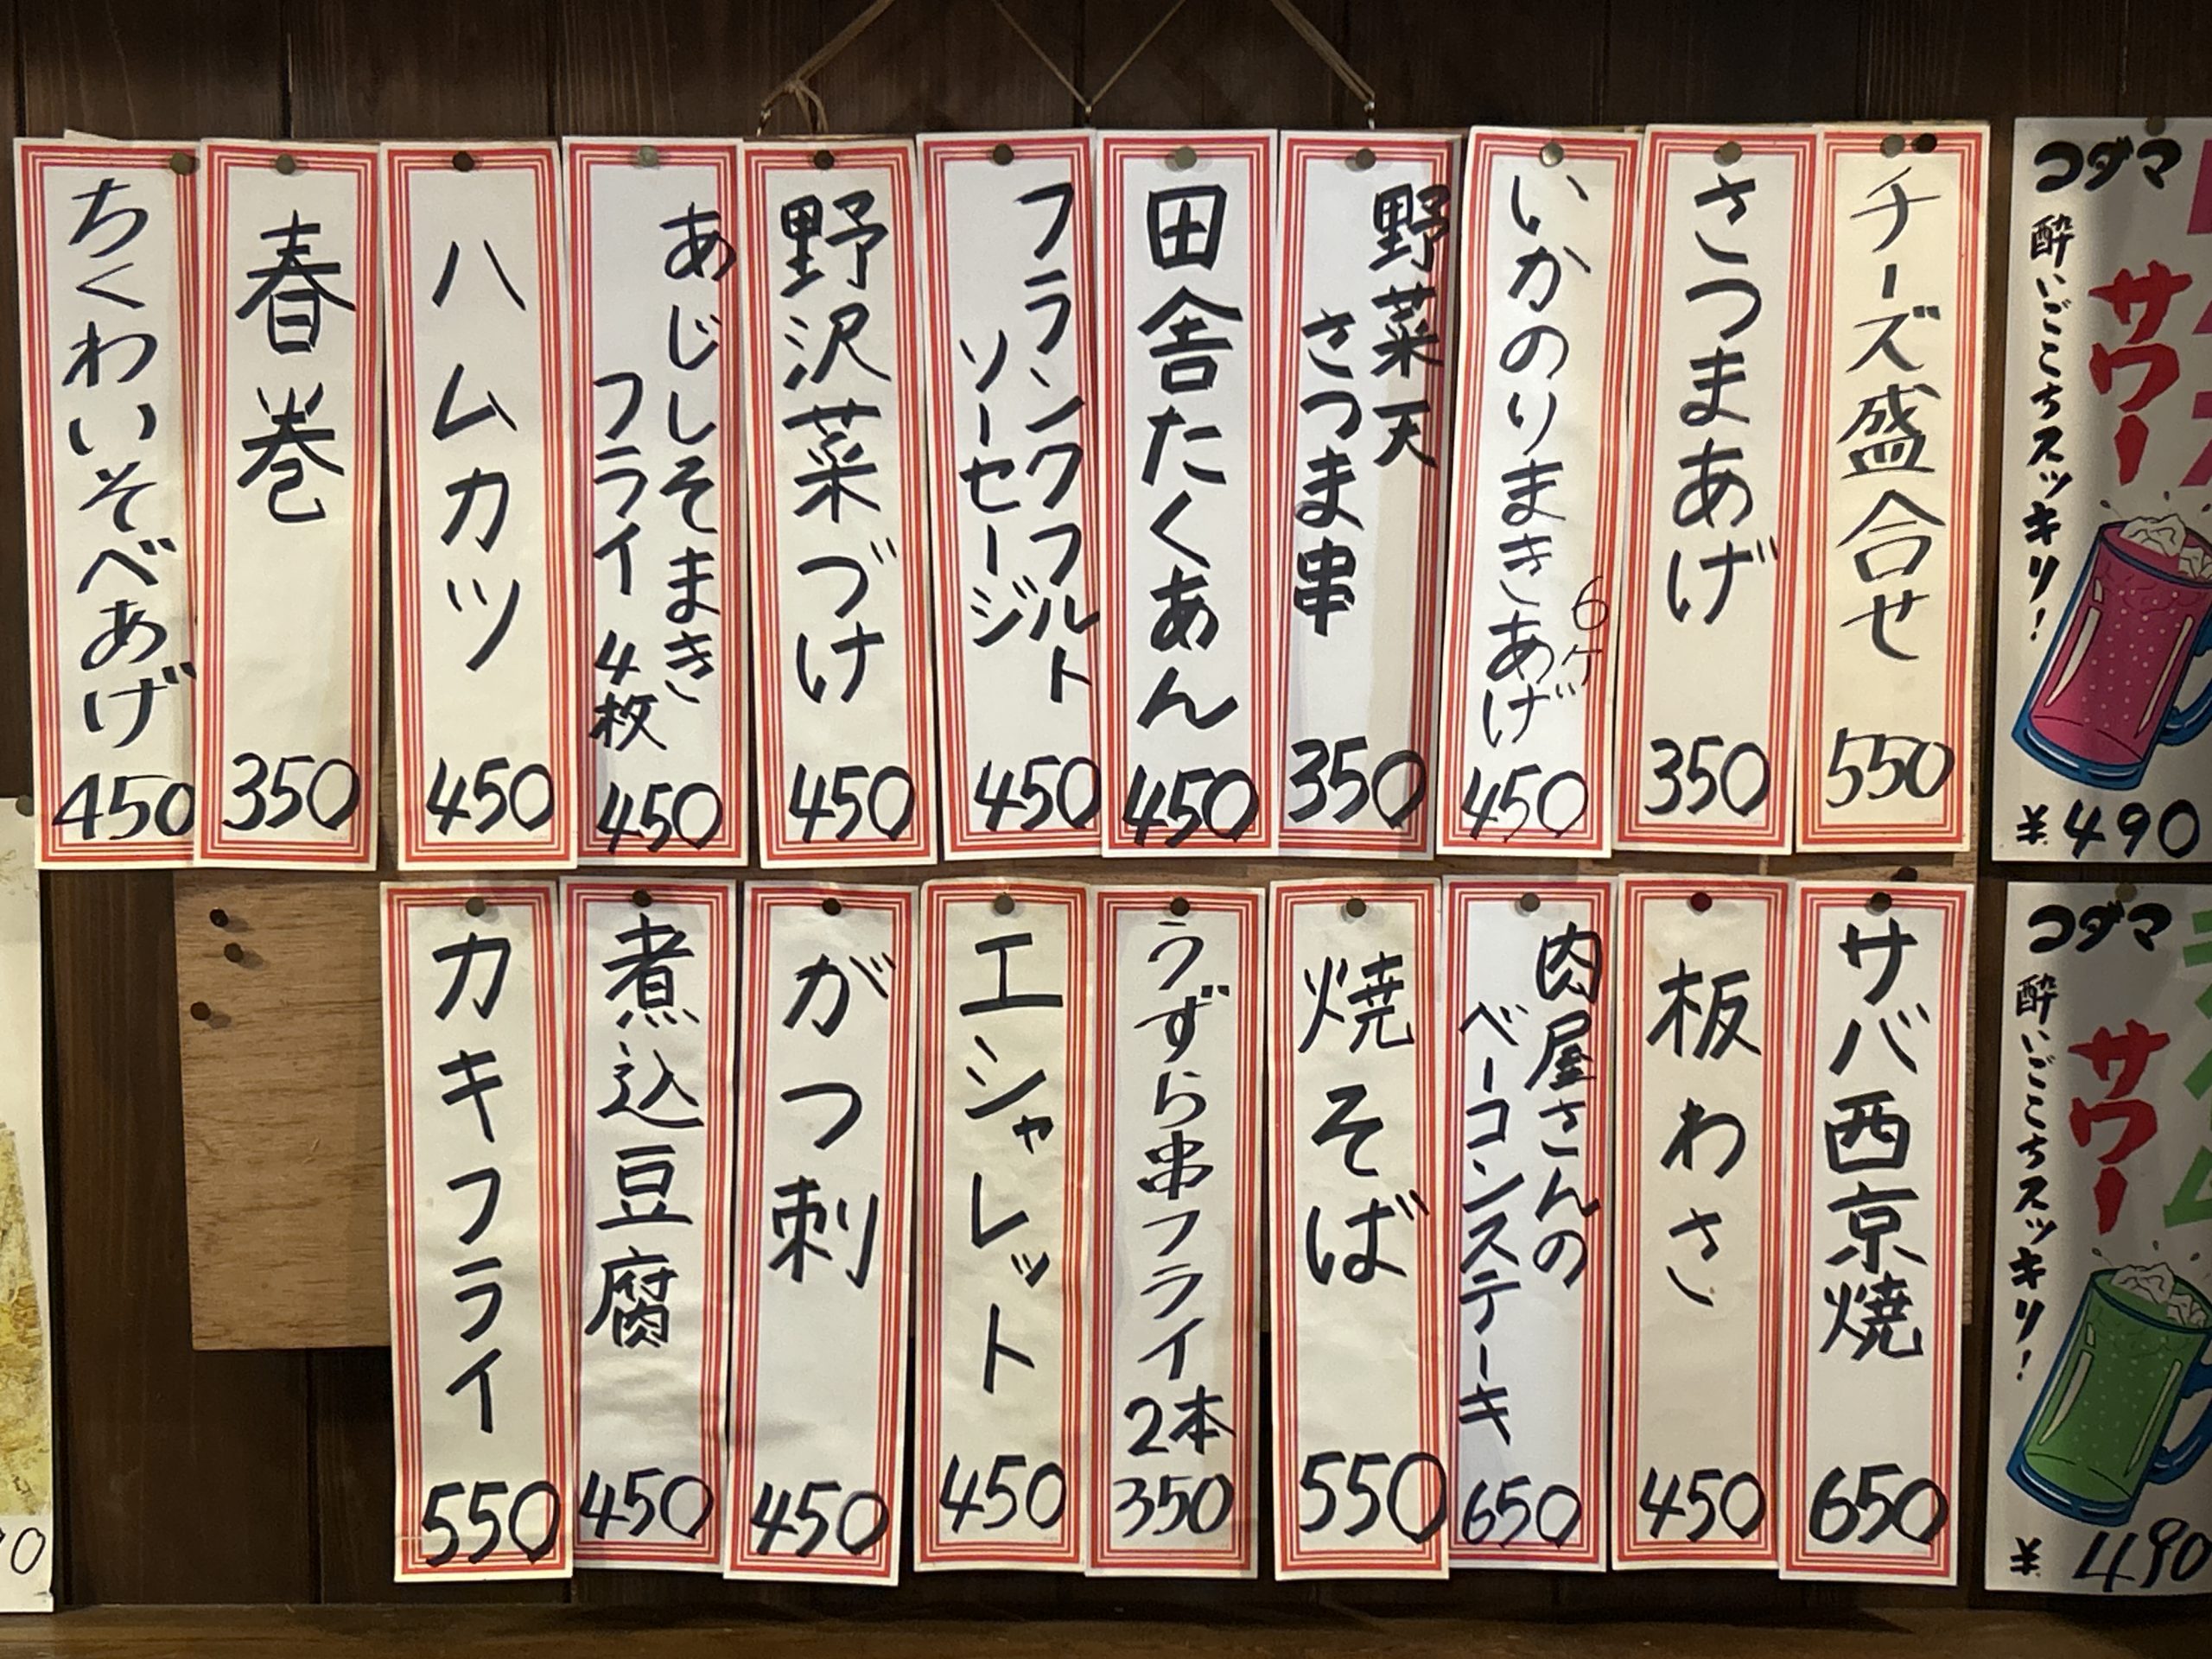 コダマ
サワー
酔いごこちスッキリ!
¥490
チーズ盛合せ
550
さつまあげ
350
いかのりまきあげ
6ケ
450
野菜天
さつま串
350
田舎たくあん
450
フランクフルト
ソーセージ
450
野沢菜づけ
450
あじしそまき
フライ 4枚
450
ハムカツ
450
春巻
350
ちくわいそべあげ
450
コダマ
サワー
酔いごこちスッキリ!
¥490
サバ西京焼
650
板わさ
450
肉屋さんの
ベーコンステーキ
650
焼そば
550
うずら串フライ
2本
350
エシャレット
450
がつ刺
450
煮込豆腐
450
カキフライ
550